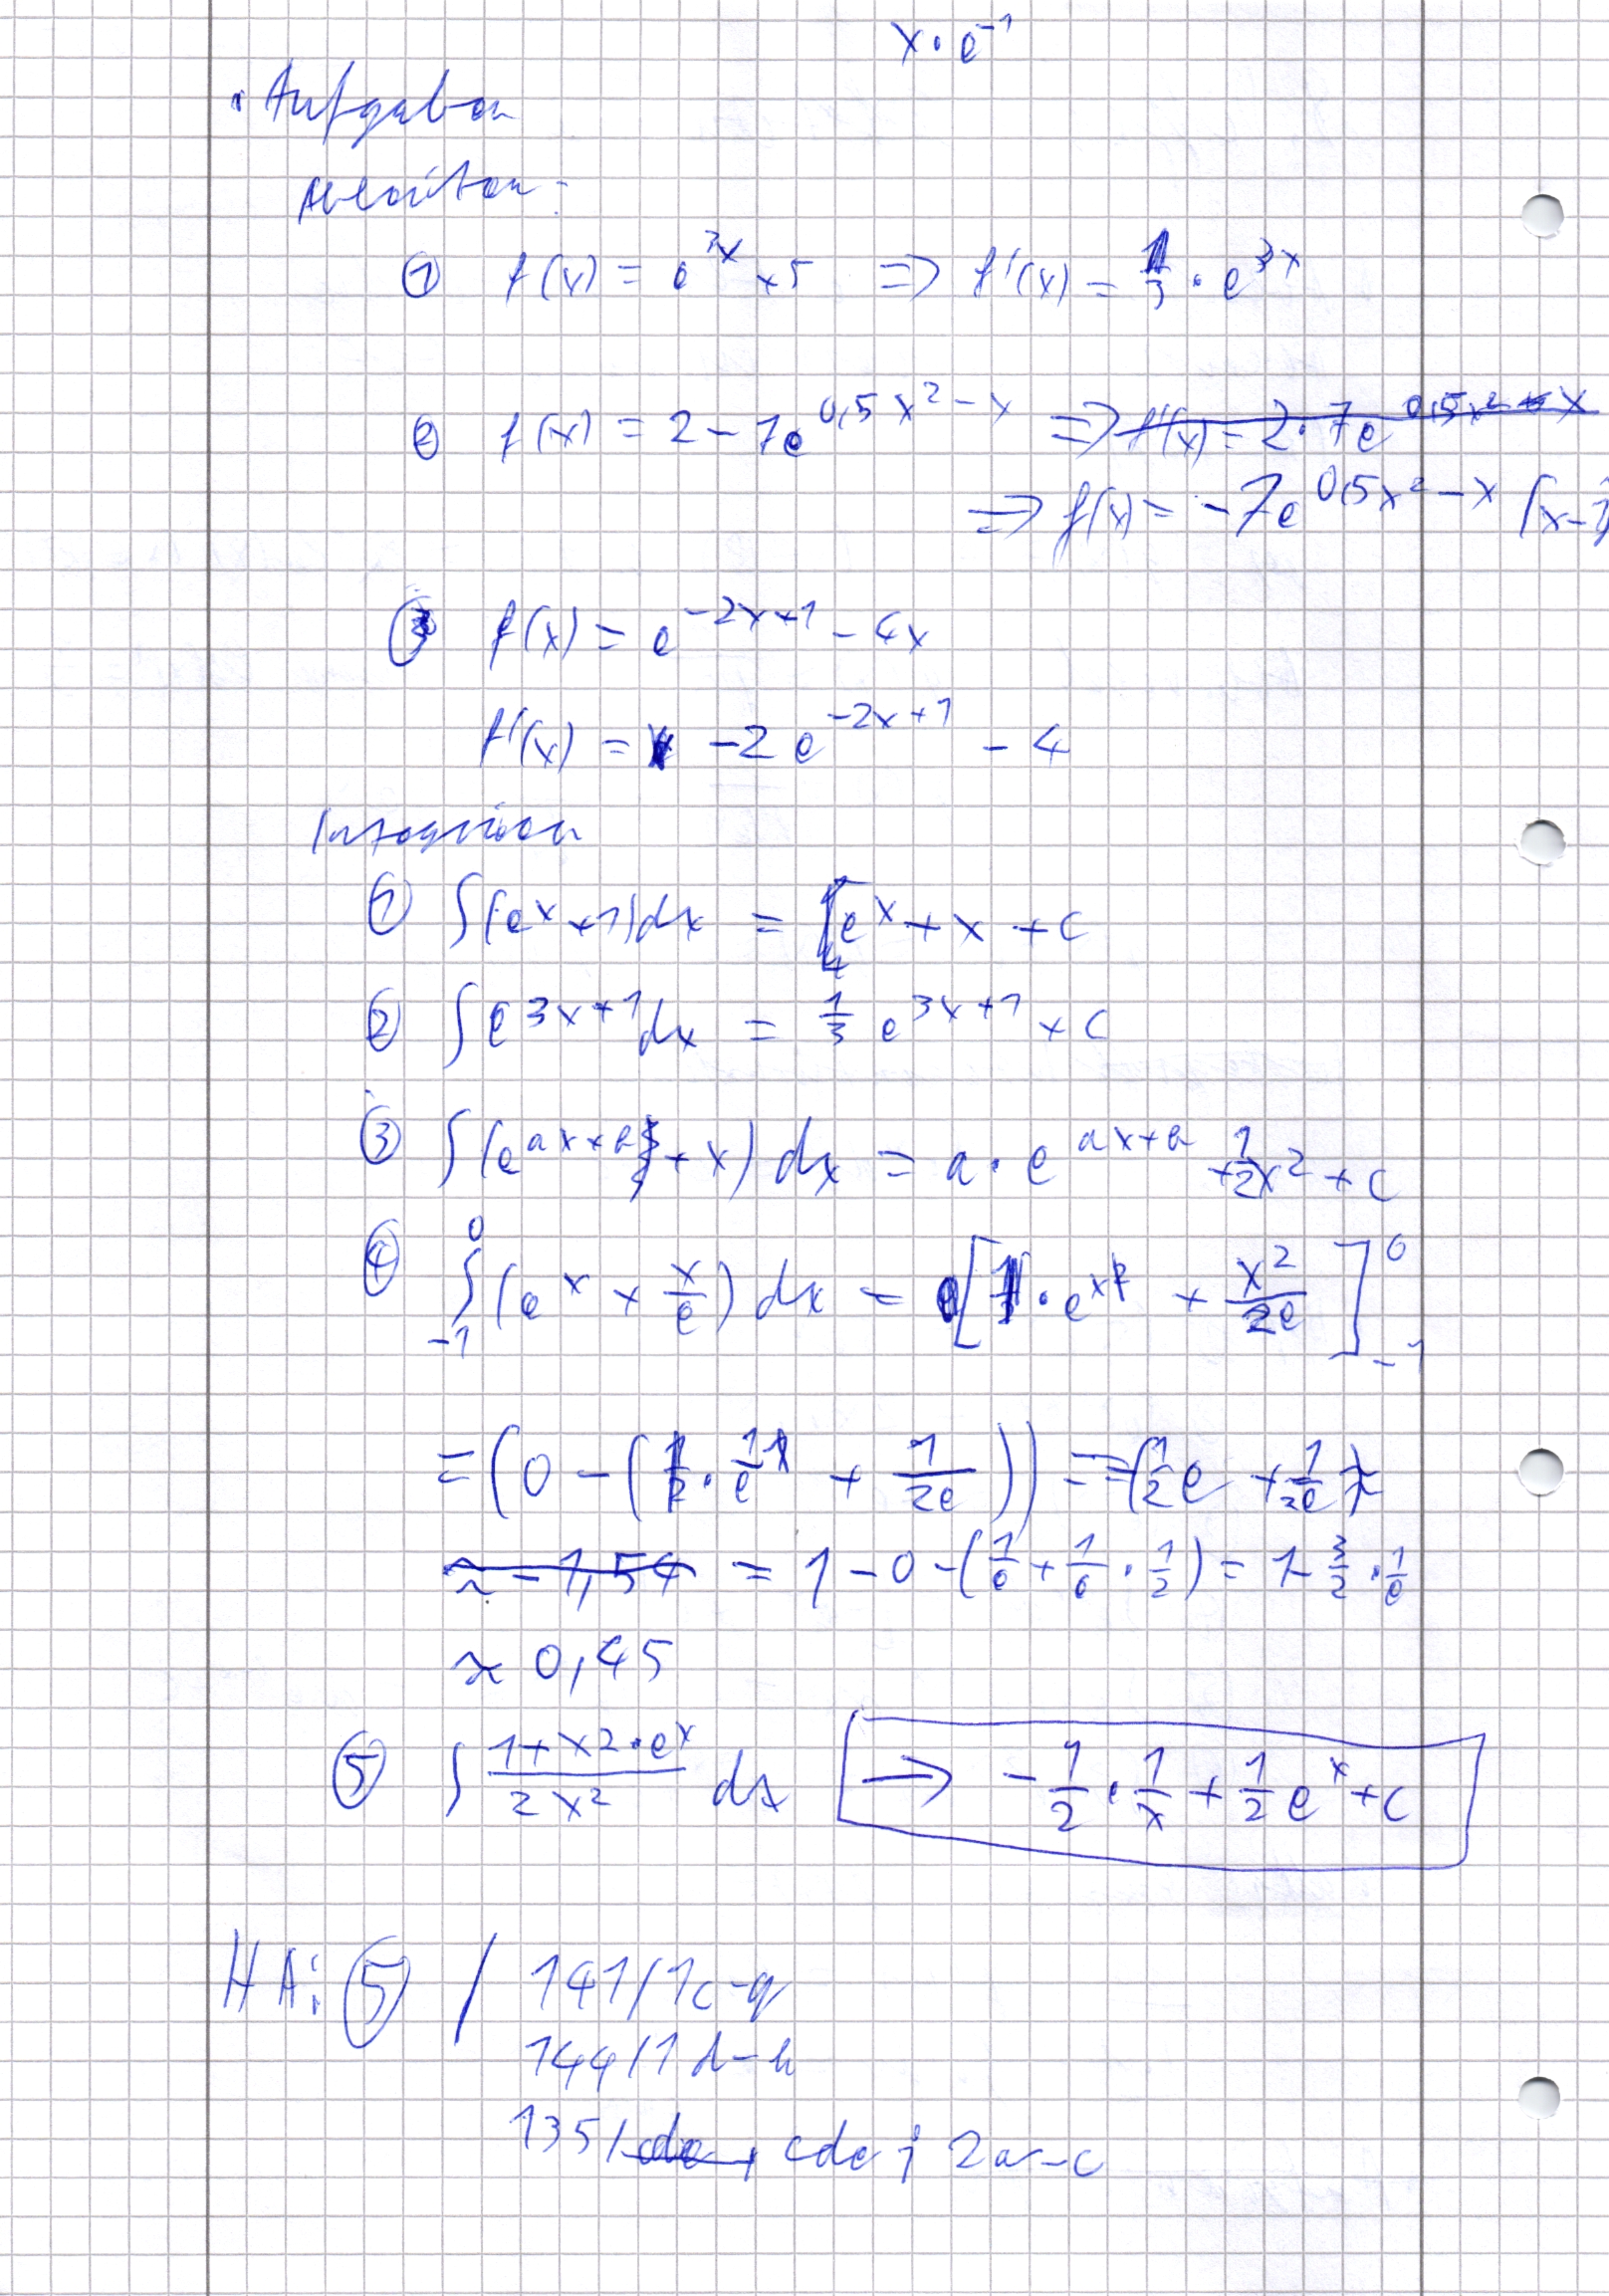 x · e⁻¹
• Aufgaben
Ableiten:
① f(x) = e^{3x} + 5 ⇒ f'(x) = 3 · e^{3x}
② f(x) = 2 - 7e^{0,5x² - x} ⇒ f'(x) = 2 · 7e^{0,5x² - x}
⇒ f(x) = -7e^{0,5x² - x} (x-1)
③ f(x) = e^{-2x+1} - 4x
f'(x) = -2 e^{-2x+1} - 4
Integrieren
① ∫(e^x + 1)dx = e^x + x + c
② ∫ e^{3x+1} dx = 1/3 e^{3x+1} + c
③ ∫(e^{ax+b} + x) dx = a · e^{ax+b} + 1/2 x² + c
④ ∫_{-1}^{0} (e^x + x/e) dx = [1 · e^x + x²/2e]_{-1}^{0}
= (0 - ( · 1/e + 1/2e)) = -(1/2 e + 1/2e)
≈ -1,54 = 1 - 0 - (1/e + 1/e · 1/2) = 1 - 3/2 · 1/e
≈ 0,45
⑤ ∫ (1 + x2 · e^x)/(2x²) dx → -1/2 · 1/x + 1/2 e^x + c
HA: ⑤ / 141/1c-g
144/1d-h
135/cde, cde; 2a-c